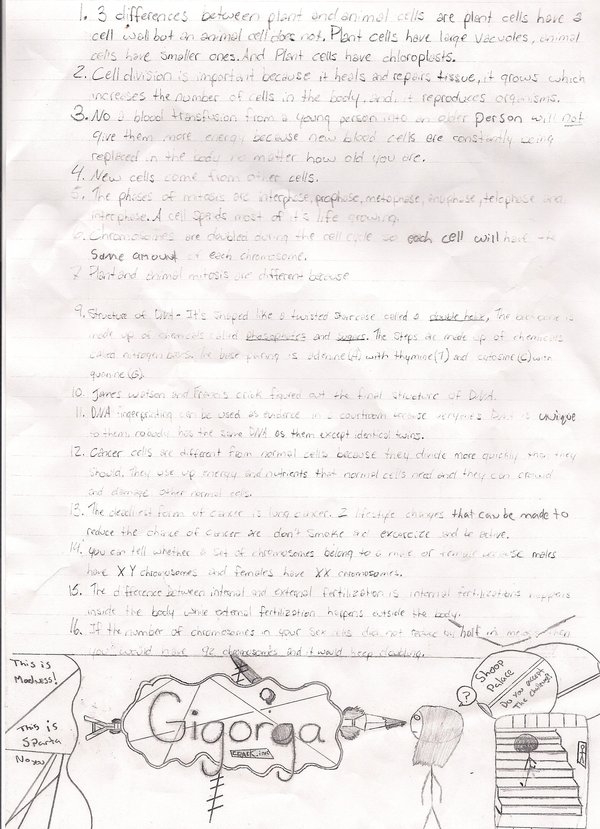 1. 3 differences between plant and animal cells are plant cells have a
cell wall but an animal cell does not. Plant cells have large vacuoles, animal
cells have smaller ones. And Plant cells have chloroplasts.
2. Cell division is important because it heals and repairs tissue, it grows which
increases the number of cells in the body. and, it reproduces organisms.
3. No a blood transfusion from a young person into an older person will not
give them more energy because new blood cells are constantly being
replaced in the body no matter how old you are.
4. New cells come from other cells.
5. The phases of mitosis are interphase, prophase, metaphase, anaphase, telophase and
interphase. A cell spends most of it's life growing.
6. Chromosomes are doubled during the cell cycle so each cell will have the
same amount of each chromosome.
7. Plant and animal mitosis are different because
9. Structure of DNA - It's shaped like a twisted staircase called a double helix, The backbone is
made up of chemicals called phosphates and sugars. The steps are made up of chemicals
called nitrogen bases. The base pairing is adenine(A) with thymine(T) and cytosine(C) with
guanine(G).
10. James Watson and Francis crick figured out the final structure of DNA.
11. DNA fingerprinting can be used as evidence in a courtroom because DNA is unique
to them, nobody has the same DNA as them except identical twins.
12. Cancer cells are different from normal cells because they divide more quickly than they
should. They use up energy and nutrients that normal cells need and they can crowd
and damage other normal cells.
13. The deadliest form of cancer is lung cancer. 2 lifestyle changes that can be made to
reduce the chance of cancer are don't smoke and and be active.
14. You can tell whether a set of chromosomes belong to a male or female because males
have XY chromosomes and females have XX chromosomes.
15. The difference between internal and external fertilization is internal fertilizations happens
inside the body while external fertilization happens outside the body.
16. If the number of chromosomes in your sex cells did not reduce by half in meiosis then
you would have 92 chromosomes and it would keep doubling.
This is
Madness!
This is
Sparta
No you
Gigorga
?
Shoop
Palace
Do you accept
The challenge?